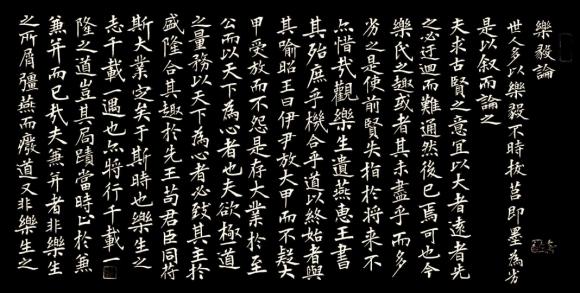 樂毅論
世人多以樂毅不時拔莒即墨為劣
是以叙而論之
夫求古賢之意宜以大者遠者先
之必迂迴而難通然後已焉可也今
樂氏之趣或者其未盡乎而多
劣之是使前賢失指於將來不
亦惜哉觀樂生遺燕惠王書
其殆庶乎機合乎道以終始者與
其喻昭王曰伊尹放大甲而不疑大
甲受放而不怨是存大業於至
公而以天下為心者也夫欲極道
之量務以天下為心者必致其主於
盛隆合其趣於先王苟君臣同符
斯大業定矣于斯時也樂生之
志千載一遇也亦將行千載一
隆之道豈其局蹟當時止於兼
并而已哉夫兼并者非樂生
之所屑彊燕而廢道又非樂生之